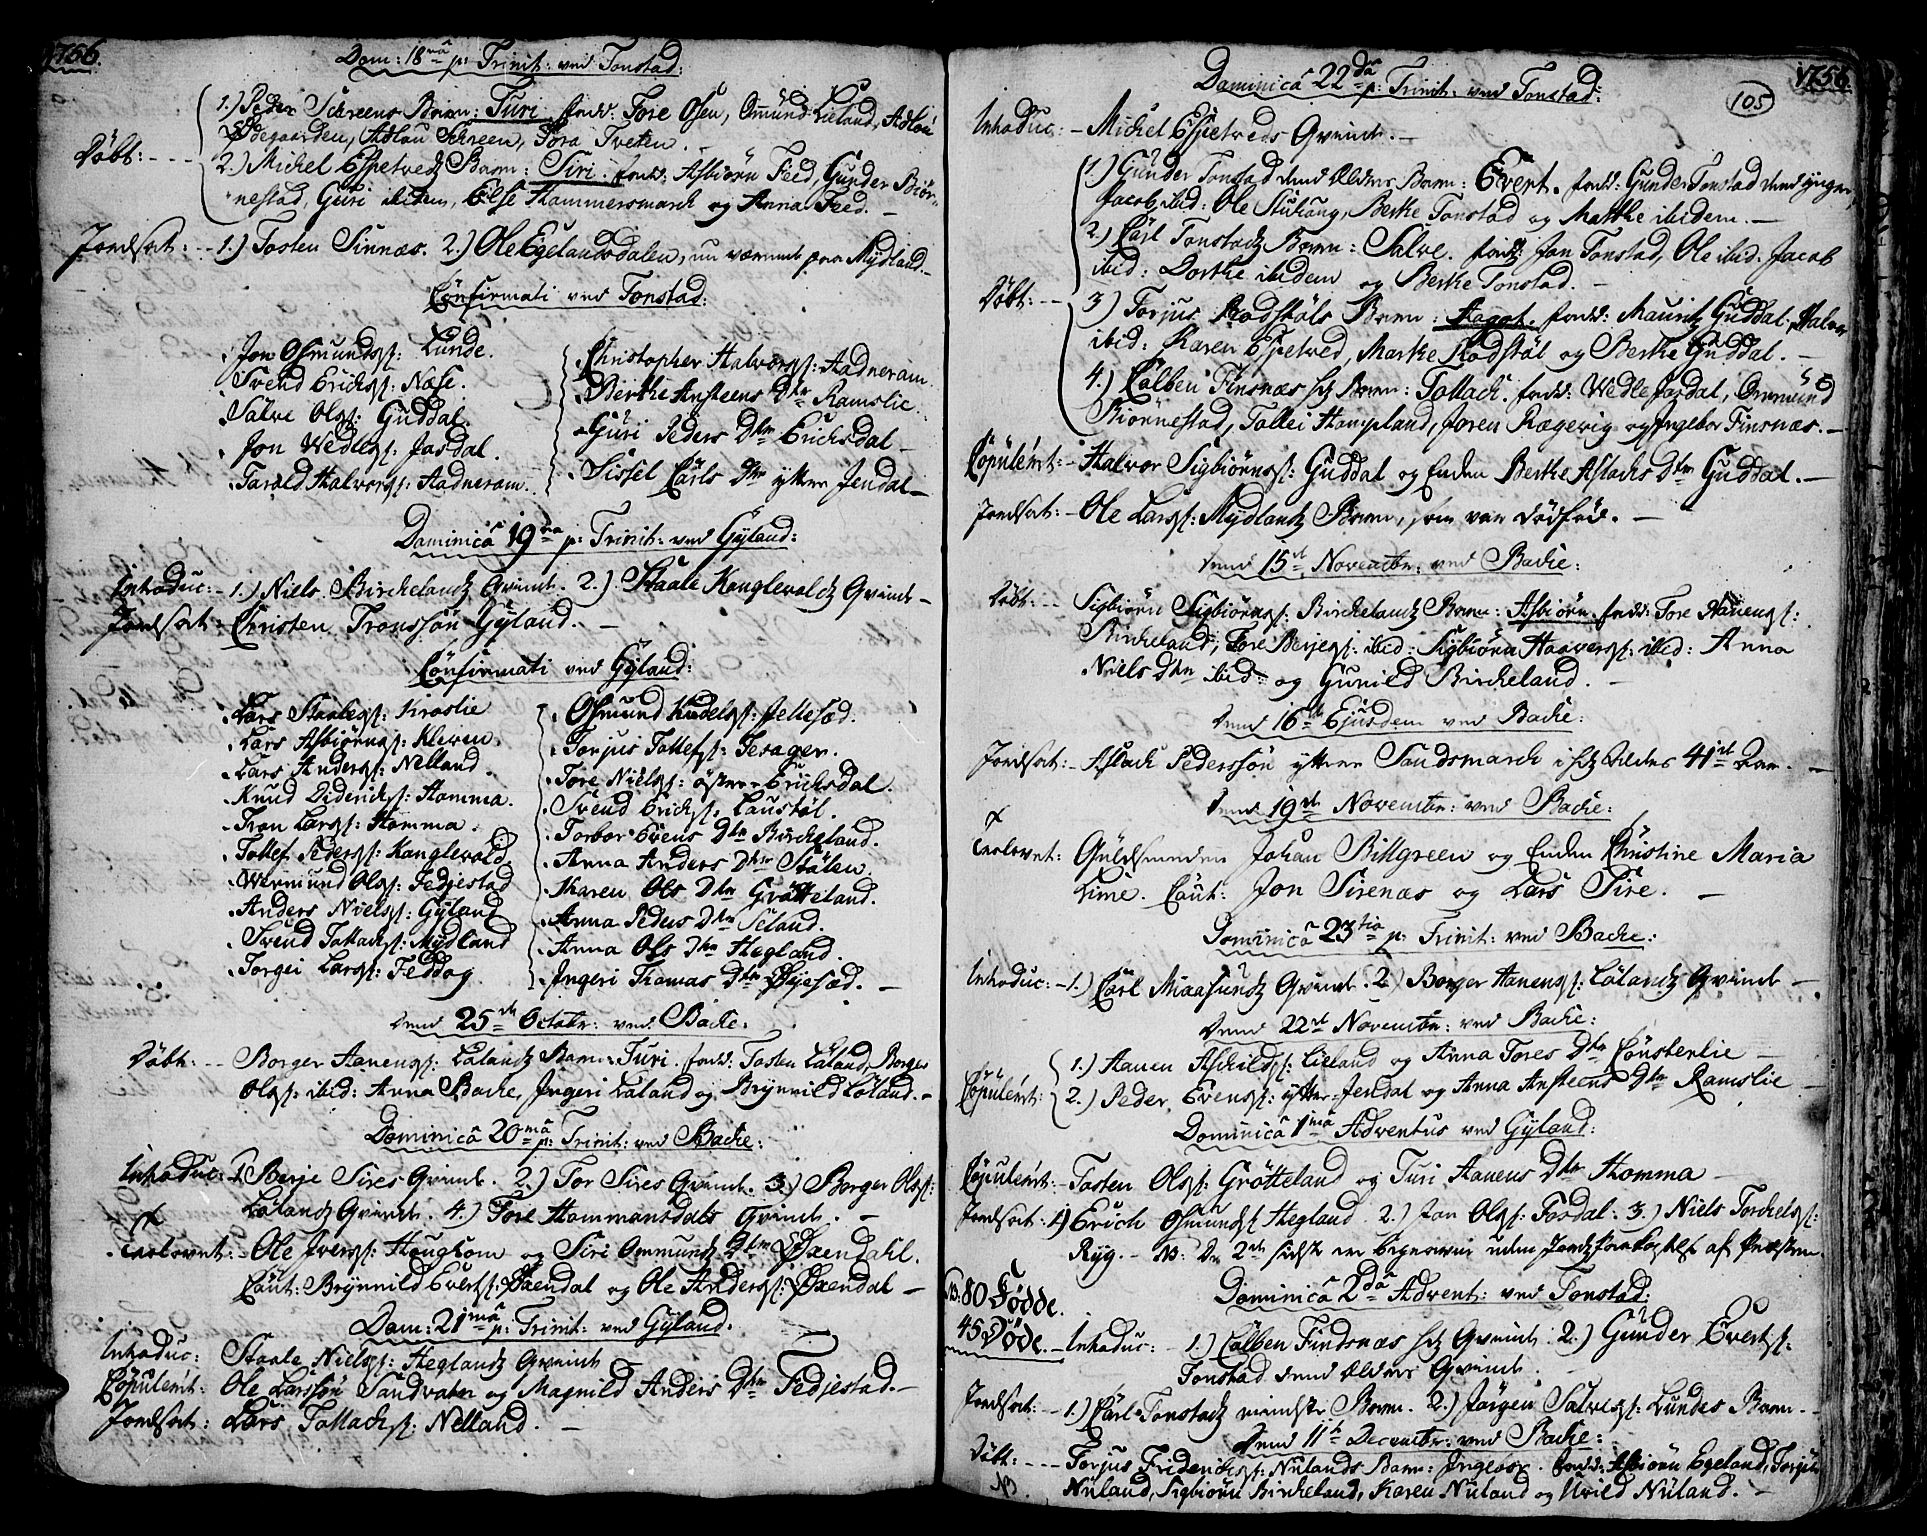 1756.
Dom: 18na p: Trinit: ved Tonstad:
1.) Peder Schreens Barn: Turi. fad: Tore Osen, Omund Lieland, Adlou
Ødegaarden, Adlou Schreen, Tora Tveten.
Döbt: ---
2.) Michel Espetvedz Barn: Siri. fad: Asbiörn Feed, Gunder Biör-
nestad, Guri ibidem, Else Hammersmarch og Anna Feed. -
Jordsat: -- 1.) Tosten Sinnæs. 2.) Ole Egelandsdalen, nu værende paa Mydland.-
Confirmati ved Tonstad:
Jon Osmundss: Lunde.
Svend Erichss: Næse.
Salve Olss: Guddal.
Jon Wedless: Josdal.
Tarald Halvorss: Aadneram.
Christopher Halvorss: Aadneram.
Berthe Ansteens Dtr Ramslie.
Guri Peders Dtr Erichsdal
Sissel Carls Dtr yttre Jendal-
Dominicâ 19na p: Trinit: ved Gyland:
Introduc: - 1.) Niels Birchelandz Qvinde. 2.) Staale Kanglevoldz Qvinde -
Jordsat - Christen Tronssön Gyland. -
Confirmati ved Gyland:
Lars Staaless: Kraslie
Lars Asbiörnss: Kleven.
Lars Anderss: Nelland.
Knud Diderichss: Homma.
Tron Larss: Homma.
Tollef Pederss: Kanglevold.
Wermund Olss: Fedjestad
Anders Nielss: Gyland
Svend Tollachss: Mydland
Torgei Larss: Feddog
Osmund Kudelss: Jellesæd.
Torjus Tollefss: Tesager.
Tore Nielss: östre Erichsdal.
Svend Erichss. Laustöl.
Torbor Evens Dtr Bircheland.
Anna Anders Dtr Stölen.
Karen Ols Dtr Grötteland.
Anna Peders Dtr Seland.
Anna Ols Dtr Hegland.
Ingeri Thomas Dtr Øyesæd. -
Dend 25de Octobr: ved Backe:
Döbt: -- Borger Aanenss: Lalandz Barn: Turi. fad: Tosten Laland, Borger
Olss: ibid: Anna Backe, Ingeri Laland og Brynnild Löland. -
Dominicâ 20mâ p: Trinit: ved Backe:
Introduc: 1. Berje Sires Qvinde. 2.) Tor Sires Qvinde. 3.) Borger Olss:
Lalandz Qvinde. 4.) Tore Hammansdals Qvinde. -
Trolovet: - Ole Iverss: Houghom og Siri Ommundz Dtr Øxendahl.
Caut: Brynnild Everss: Øxendal og Ole Anderss: Øxendal -
Dom: 21mâ p: Trinit: ved Gyland:
Introduc: Staale Nielss: Heglandz Qvinde
Copuleret: Ole Larssön Sandvatn og Magnild Anders Dtr Fedjestad. -
Jordsat: Lars Tollachss: Nelland. -
1756.
105
Dominicâ 22dâ p: Trinit: ved Tonstad:
Introduc: - Michel Espetveds Qvinde. -
1.) Gunder Tonstad dend Ældres Barn: Evert. fad: Gunder Tonstad dend yngre,
Jacob ibid: Ole Stuhoug, Berthe Tonstad og Marthe ibidem. -
2.) Carl Tonstadz Barn: Salve. fad: Jon Tonstad, Ole ibid. Jacob
ibid: Dorthe ibidem og Berthe Tonstad. -
Döbt: --
3.) Torjus Rodstöls Barn: Aagot. fad: Mauritz Guddal, Halvor
ibid: Karen Espetved, Marthe Rodstöl og Berthe Guddal. -
4.) Colben Finsnæs hs Barn: Tollach. fad: Wedle Josdal, Ommund
Biörnestad, Tollei Hompland, Joren Rægevig og Ingebor Finsnæs. -
Copuleret: - Halvor Sigbiörnss: Guddal og Enken Berthe Aslachs Dtr Guddal. -
Jordsat: - Ole Larss: Mydlandz Barn, som var dödföd. -
Dend 15de Novembr: ved Backe:
Döbt: -- Sigbiörn Sigbiörnss: Birchelandz Barn: Asbiörn. fad: Tore Aanenss:
Bircheland, Tore Berjess: ibid: Sigbiörn Haaverss: ibid: Anna
Niels Dtr ibid: og Gunild Bircheland. -
Dend 16de Ejusdem ved Backe:
Jordsat: - Aslach Pederssön yttre Sandsmarch i hs Alders 41de Aar. -
Dend 19de Novembr: ved Backe:
Trolovet: Guldsmeden Johan Billgreen og Enken Christine Maria
Lime. Caut: Jon Sirenæs og Lars Sire. -
Dominicâ 23tia p: Trinit: ved Backe:
Introduc: - 1.) Carl Miaasundz Qvinde. 2.) Borger Aanenss: Lalandz Qvinde -
Dend 22de Novembr: ved Backe:
1.) Aanen Aschildss: Lieland og Anna Tores Dtr Constenlie -
Copuleret: 2.) Peder Evenss: yttre Jendal og Anna Ansteens Dtr Ramslie -
Dominicâ 1mâ Adventus ved Gyland:
Copuleret: - Tosten Olss: Grötteland og Turi Aanens Dtr Homma -
Jordsat: 1.) Erich Osmundss Hegland. 2.) Jon Olss: Fosdal: 3.) Niels Torchelss:
Ryg. - NB: De 2de sidste ere begravne uden Jords paakastelse af Præsten.
Dominicâ 2dâ Advent: ved Tonstad:
NB. 80 Födde.
45 Döde.
Introduc: - 1.) Colben Findsnæs hs Qvinde. 2.) Gunder Evertss:
Tonstad dend Ældres Qvinde. -
Jordsat: - 1.) Carl Tonstadz mindste Barn. 2.) Jörgen Salvess: Lundes Barn. -
Dend 11te Decembr: ved Backe:
Döbt: ---- Torjus Friderichss: Nulands Barn: Ingebor. fad: Asbiörn Egeland, Torjus
NB. Nuland, Sigbiörn Bircheland, Karen Nuland og Nuland. -